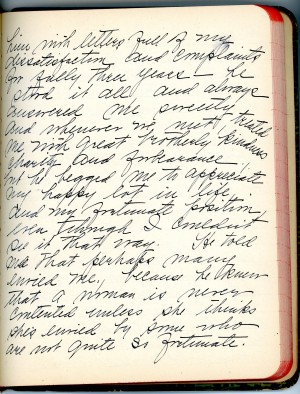 him with letters full of my
dissatisfaction and complaints
for fully three years — he
stood it all and always
answered me sweetly
and whenever we met, treated
me with great brotherly kindness
charity and forbearance
but he begged me to appreciate
my happy lot in life,
and my fortunate position
even though I couldn't
see it that way. He told
me that perhaps many
envied me, because he knew
that a woman is never
contented unless she thinks
she's envied by some who
are not quite so fortunate.